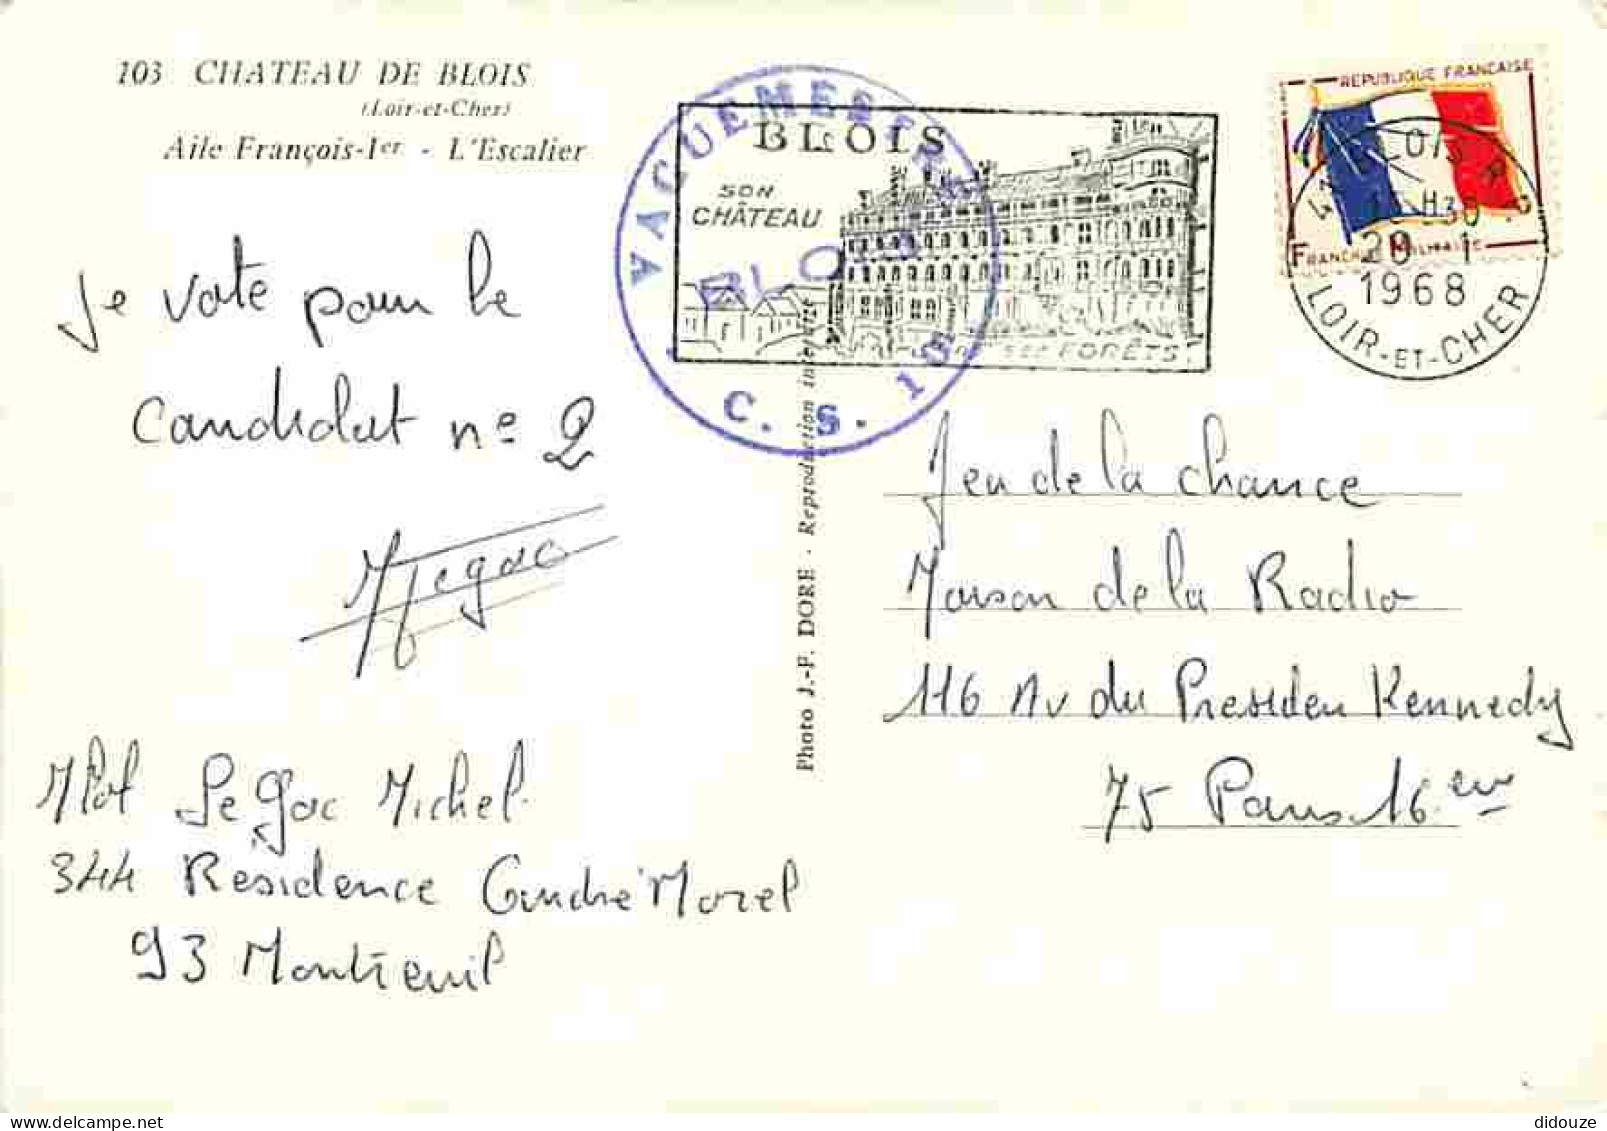 103 CHATEAU DE BLOIS
(Loir-et-Cher)
Aile François-Ier - L'Escalier
Je vote pour le
Candidat n° 2
Legac
Mlot Le Gac Michel
344 Résidence André Morel
93 Montreuil
Photo J.-F. DORE - Reproduction interdite
VAGUEMESTRE
BLOIS
C. S. 101
BLOIS
SON
CHÂTEAU
ses FORÊTS
REPUBLIQUE FRANCAISE
FRANCHISE MILITAIRE
BLOIS R.P.
H30
20 - 1
1968
LOIR-ET-CHER
Jeu de la chance
Maison de la Radio
116 Av du Presiden Kennedy
75 Paris 16 eme
didouze